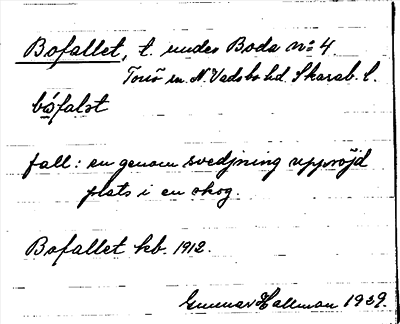 Bofallet, t. under Boda nº 4
Torsö sn N. Vadsbo hd. Skarab. l.
bófalst
fall: en genom svedjning uppröjd
plats i en skog.
Bofallet kb. 1912.
Gunnar Hallman 1939.